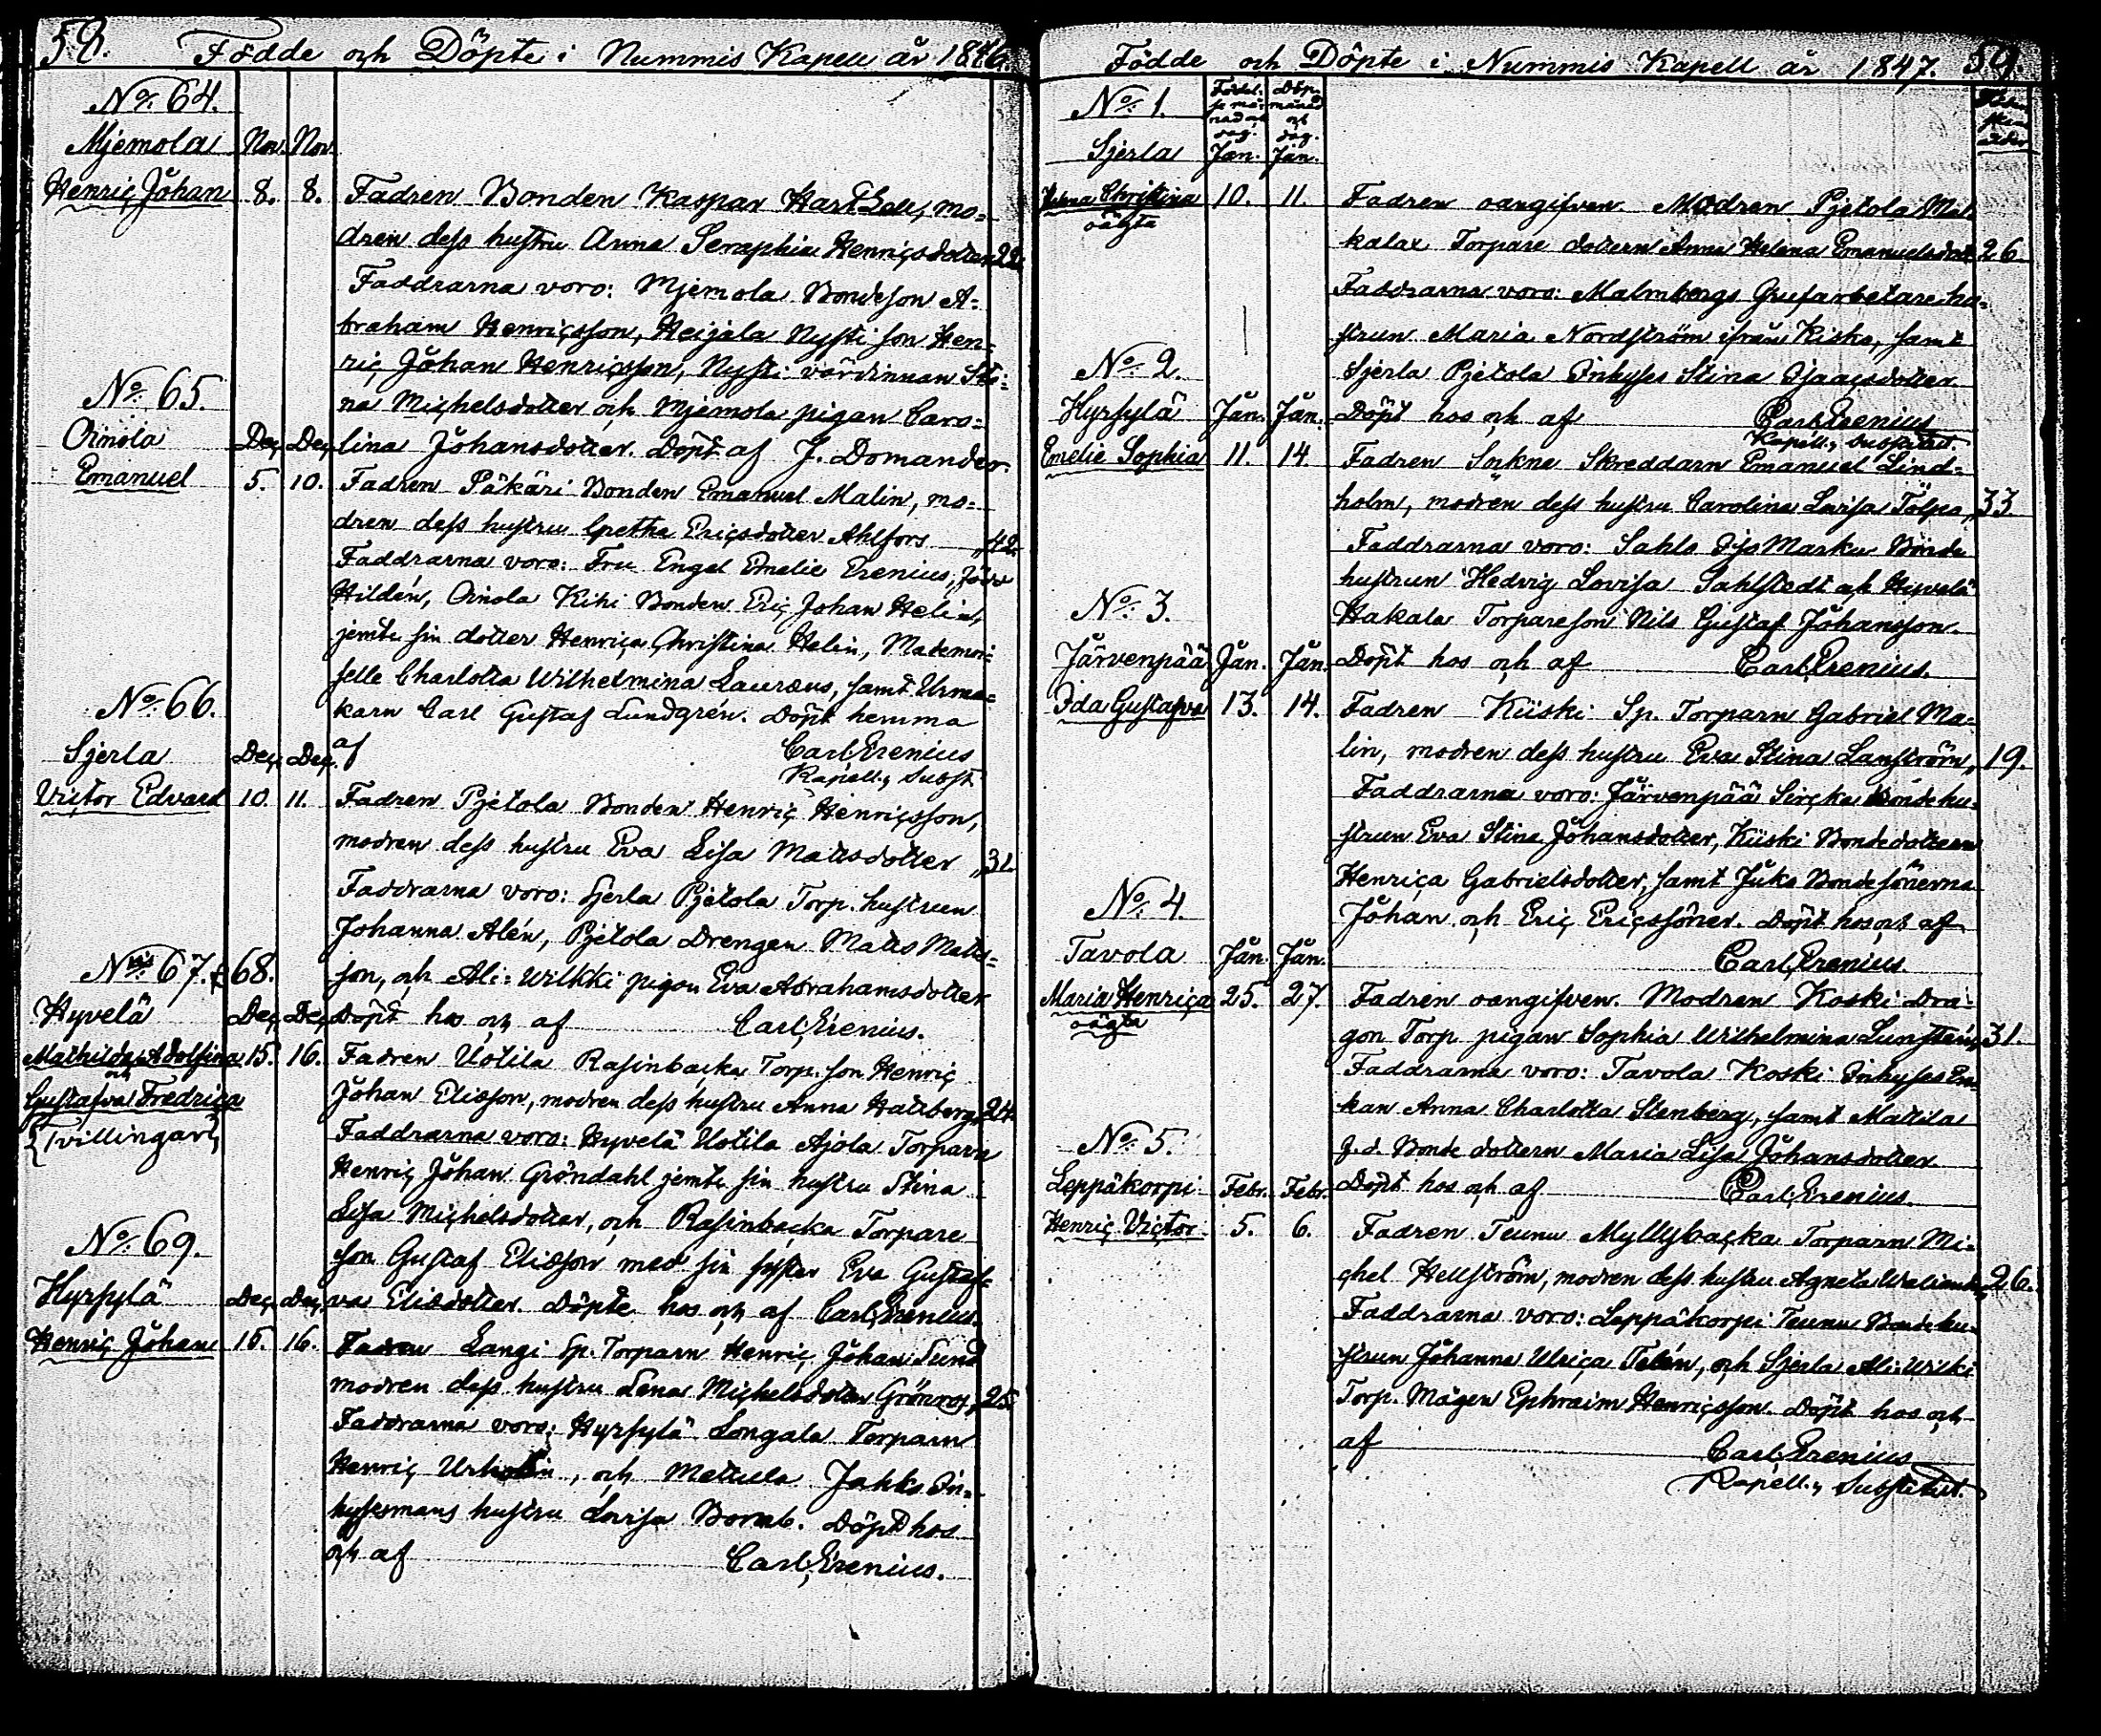 58. Födde och Döpte i Nummis Kapell år 1846.
No. 64.
Mjemola Nov. Nov.
Henric Johan 8. 8. Fadren Bonden Kaspar Hartzell, mo-
dren dess hustru Anna Seraphia Henricsdotter 22.
Faddrarna voro: Mjemola Bondeson A-
braham Henricsson, Heijala Nysti son Hen-
ric Johan Henricsson, Nysti värdinnan Sti-
na Michelsdotter och Mjemola pigan Caro-
lina Johansdotter. Döpt af J. Domander.
No. 65.
Oinola Dec. Dec.
Emanuel 5. 10. Fadren Päkäri Bonden Emanuel Malin, mo-
dren dess hustru Gretha Ericsdotter Ahlfors 42.
Faddrarna voro: Fru Engel Emelie Erenius,
Hildén, Oinola Kihi Bonden Eric Johan Helin,
jemte sin dotter Henrica Christina Helin, Mademoi-
selle Charlotta Wilhelmina Lauræus, samt Urma-
karn Carl Gustaf Lundgrén. Döpt hemma
af Carl Erenius
Kapell. Subst.
No. 66.
Sjerla Dec. Dec.
Victor Edvard 10. 11. Fadren Pjetola Bonden Henric Henricsson,
modren dess hustru Eva Lisa Mattsdotter 31.
Faddrarna voro: Sjerla Pjetola Torp. hustrun
Johanna Alén, Pjetola Drengen Matts Matts-
son, och Ali-Wilkki pigan Eva Abrahamsdotter
Döpt hos och af Carl Erenius.
No. 67. & 68.
Hyvelä Dec. Dec.
Mathilda Adolfina 15. 16. Fadren Uotila Rasinbacka Torp. son Henric
och
Gustafva Fredrica Johan Eliæson, modren dess hustru Anna Hallberg, 24.
{Tvillingar} Faddrarna voro: Hyvelä Uotila Ajola Torparn
Henric Johan Gröndahl jemte sin hustru Stina
Lisa Michelsdotter, och Rasinbacka Torpare
son Gustaf Eliæson med sin syster Eva Gustaf-
va Eliædotter. Döpte hos och af Carl Erenius.
No. 69.
Hyrsylä Dec. Dec.
Henric Johan 15. 16. Fadren Langi Sp. Torparn Henric Johan Sund
modren dess hustru Lena Michelsdotter Grönroos, 25.
Faddrarna voro: Hyrsylä Longala Torparn
Henric, och Mettula Jakks In-
hysesmans hustru Lovisa Bomb. Döpt hos
och af Carl Erenius.
Födde och Döpte i Nummis Kapell år 1847. 59.
No. 1. Födel- Döp-
se må- månad
nad och och
dag. dag.
Sjerla Jan. Jan.
Helena Christina 10. 11. Fadren oangifven. Modren Pjetola Mat-
oägta kalax Torpare dottern Anna Helena Emanuelsdott. 26.
Faddrarna voro: Malmbergs Grufarbetare hu-
strun Maria Nordström ifrån Kisko, samt
Sjerla Pjetola Inhyses Stina Isaacsdotter.
No. 2.
Hyrsylä Jan. Jan. Döpt hos och af Carl Erenius
Kapell. Substitut.
Emelie Sophia 11. 14. Fadren Sokne Skreddarn Emanuel Lind-
holm, modren dess hustru Carolina Lovisa Tölpo, 33.
Faddrarna voro: Sahlo Iso Marku Bonde
hustrun Hedvig Lovisa Sahlstedt och Hyvelä
Hakala Torpareson Nils Gustaf Johansson.
No. 3.
Järvenpää Jan. Jan. Döpt hos och af Carl Erenius.
Ida Gustafva 13. 14. Fadren Kiiski Sp. Torparn Gabriel Ma-
lin, modren dess hustru Eva Stina Lanström, 19.
Faddrarna voro: Järvenpää Sircka Bonde hu-
strun Eva Stina Johansdotter, Kiiski Bonde dottern
Henrica Gabrielsdotter, samt Juko Bonde sönerna
Johan och Eric Ericssöner. Döpt hos och af
Carl Erenius.
No. 4.
Tavola Jan. Jan.
Maria Henrica 25. 27. Fadren oangifven. Modren Koski Dra-
oägta gon Torp pigan Sophia Wilhelmina Lunstén, 31.
Faddrarna voro: Tavola Koski Inhyses En-
kan Anna Charlotta Stenberg, samt Mattila
f.d. Bonde dottern Maria Lisa Johansdotter.
No. 5.
Leppäkorpi Febr. Febr. Döpt hos och af Carl Erenius.
Henric Victor 5. 6. Fadren Teunu Myllybacka Torparn Mi-
chel Hellström, modren dess hustru Agneta 26.
Faddrarna voro: Leppäkorpi Teunu Bonde hu-
strun Johanna Ulrica Telén, och Sjerla Ali-Wilki
Torp. Mågen Ephraim Henricsson. Döpt hos och
af Carl Erenius
Kapell. Substitut.